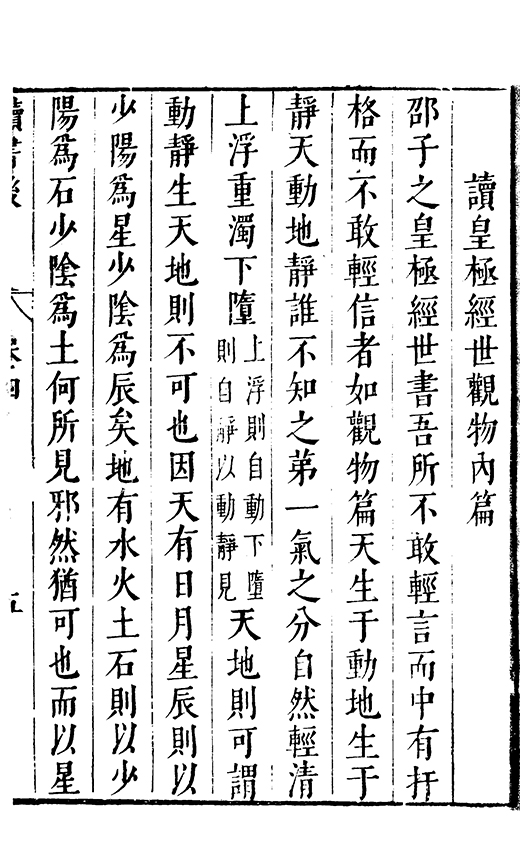 讀皇極經世觀物內篇
邵子之皇極經世書吾所不敢輕言而中有扞
格而不敢輕信者如觀物篇天生于動地生于
靜天動地靜誰不知之第一氣之分自然輕清
上浮重濁下墮上浮則自動下墮則自靜以動靜見天地則可謂
動靜生天地則不可也因天有日月星辰則以
少陽爲星少陰爲辰矣地有水火土石則以少
陽爲石少陰爲土何所見邪然猶可也而以星
讀書後 卷四 五